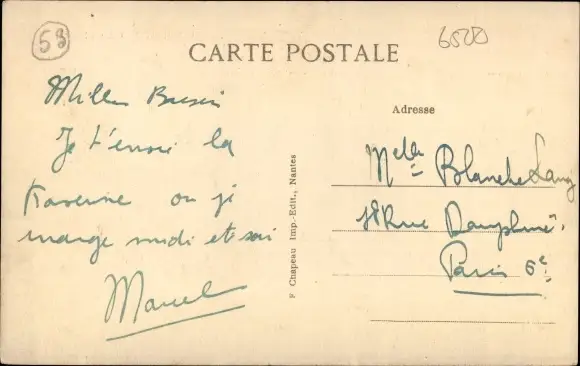 53
6500
CARTE POSTALE
Milles Baisers
Je t'envoie la
taverne ou je
mange midi et soir
Marcel
F Chapeau Imp.-Edit., Nantes
Adresse
Melle Blanche Lang
18 Rue Dauphine
Paris 6e